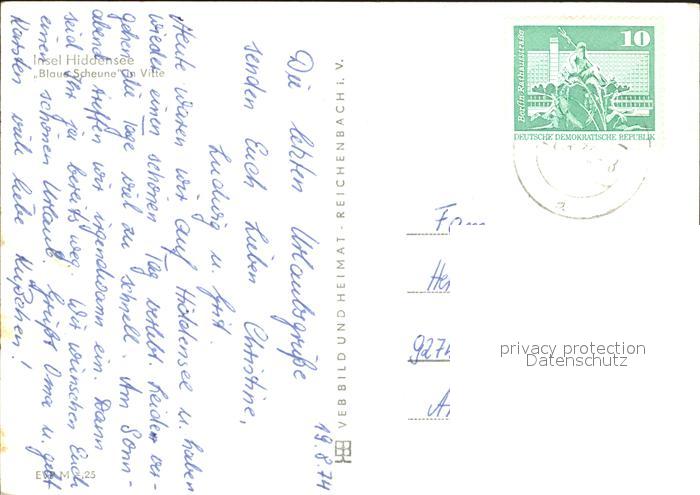 Insel Hiddensee
„Blaue Scheune" in Vitte
Die letzten Urlaubsgrüße
senden Euch Lieben Christine,
Ludwig u. Grit.
Heute waren wir auf Hiddensee u. haben
wieder einen schönen Tag verlebt. Leider ver-
gehen die Tage viel zu schnell. Am Sonn-
abend treffen wir irgendwann ein. Dann
seid Ihr ja bereits weg. Wir wünschen Euch
einen schönen Urlaub. Grüßt Oma u. gebt
Karsten viele liebe Küßchen!
19.8.74
EVP M -,25
VEB BILD UND HEIMAT - REICHENBACH i. V.
10
Berlin, Rathausstraße
DEUTSCHE DEMOKRATISCHE REPUBLIK
Fam
He
927
A
privacy protection
Datenschutz